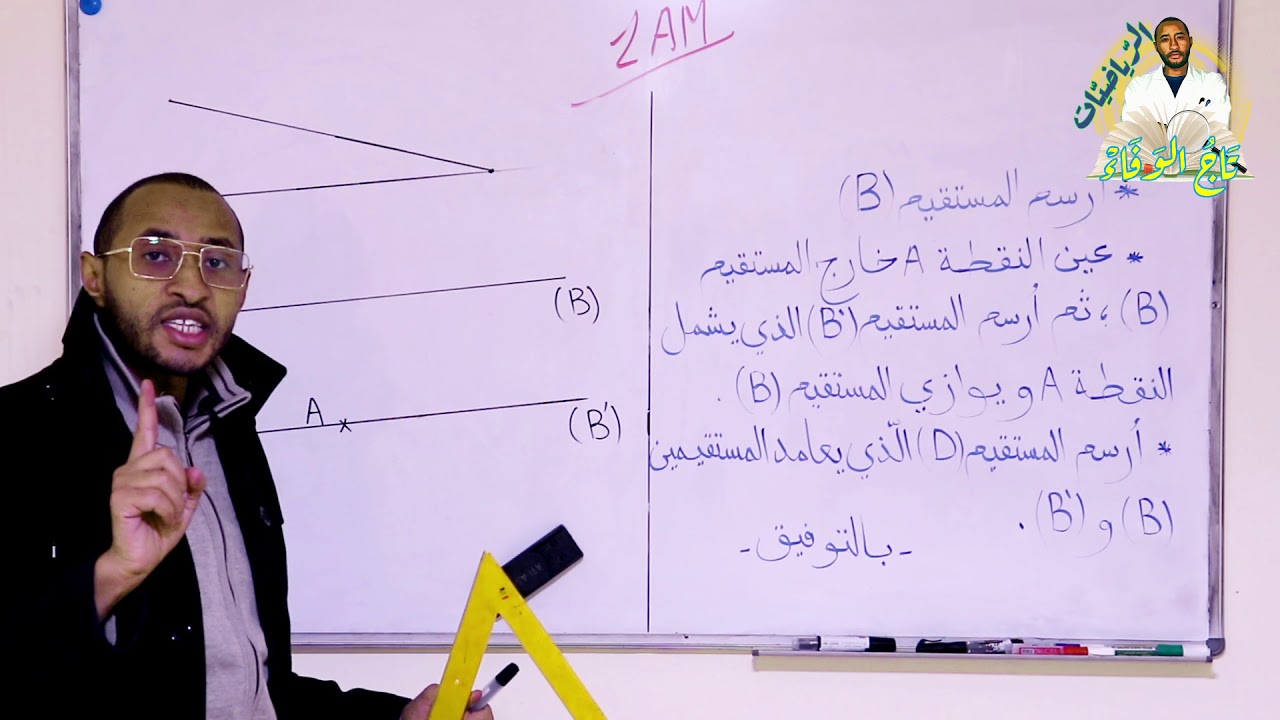 1AM
الرياضيّات
تَاجُ الوَفَاءْ
* أرسم المستقيم (B)
* عين النقطة A خارج المستقيم
(B) ، ثم أرسم المستقيم (B') الذي يشمل
النقطة A و يوازي المستقيم (B) .
* أرسم المستقيم (D) الّذي يعامد المستقيمين
(B) و (B') .
- بالتوفيق -
(B)
A
(B')